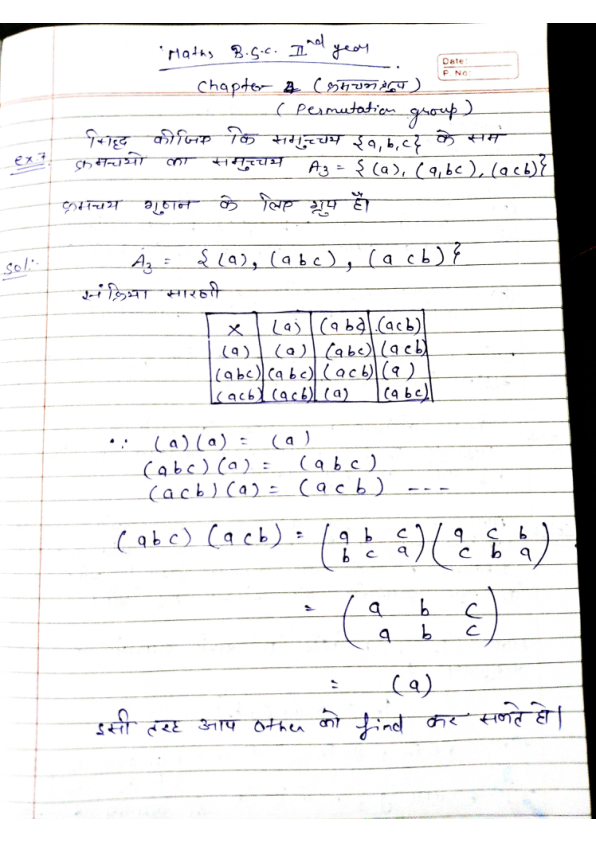 Maths B.S.c. IInd year
Date:
P. No:
Chapter 2 (क्रमचय ग्रुप)
(Permutation group)
ex 7 सिद्ध कीजिए कि समुच्चय {a,b,c} के सम
क्रमचयों का समुच्चय A3 = {(a), (a,bc), (acb)}
क्रमचय गुणन के लिए ग्रुप हैं।
Sol:- A3 = {(a), (abc), (acb)}
संक्रिया सारणी
× (a) (abc) (acb)
(a) (a) (abc) (acb)
(abc) (abc) (acb) (a)
(acb) (acb) (a) (abc)
∵ (a)(a) = (a)
(abc)(a) = (abc)
(acb)(a) = (acb) ---
(abc) (acb) = (a b c) (a c b)
(b c a) (c b a)
= (a b c)
(a b c)
= (a)
इसी तरह आप other को find कर सकते हो।